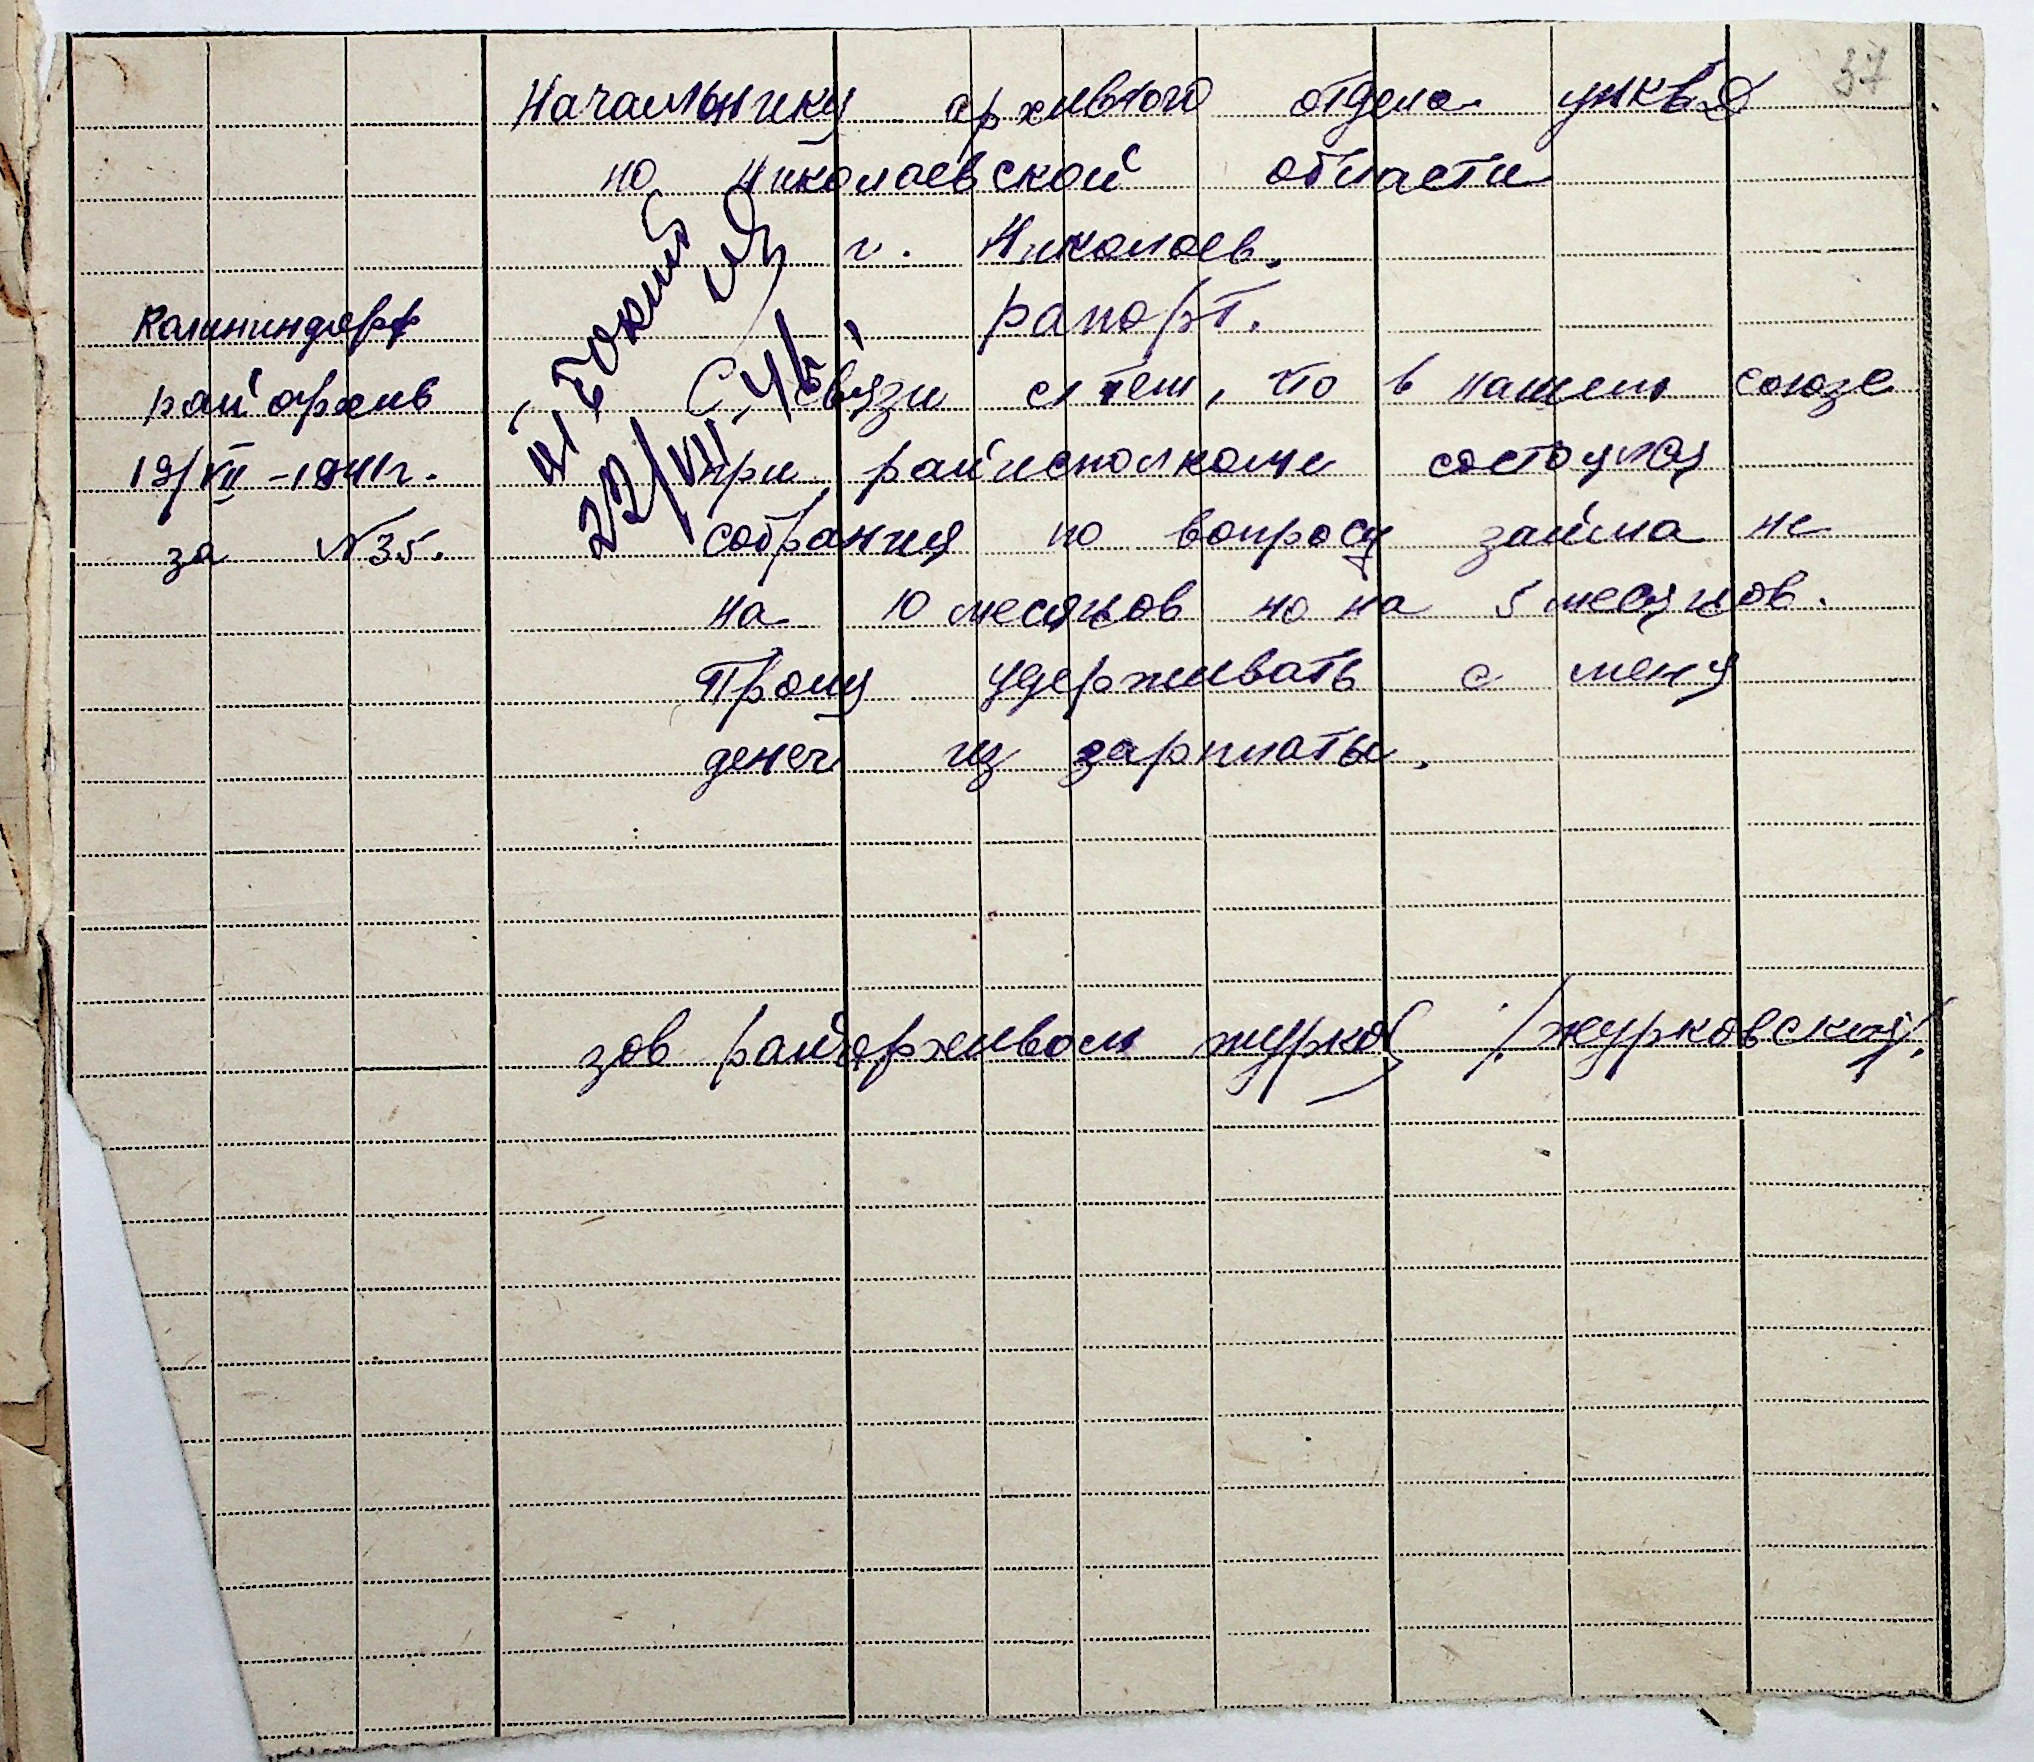 37
Начальнику архивного отдела УНКВД
по Николаевской области
г. Николаев.
Рапорт.
Калининдорф
райархив
19/VII-1941г.
за №35.
22/VII-41
С связи с тем, что в нашем союзе
при райисполкоме состоялся
собрания по вопросу займа не
на 10 месяцов но на 5 месяцов.
Прошу удерживать с меня
денег из зарплаты.
Зов райархивом Журков /Журковский/.